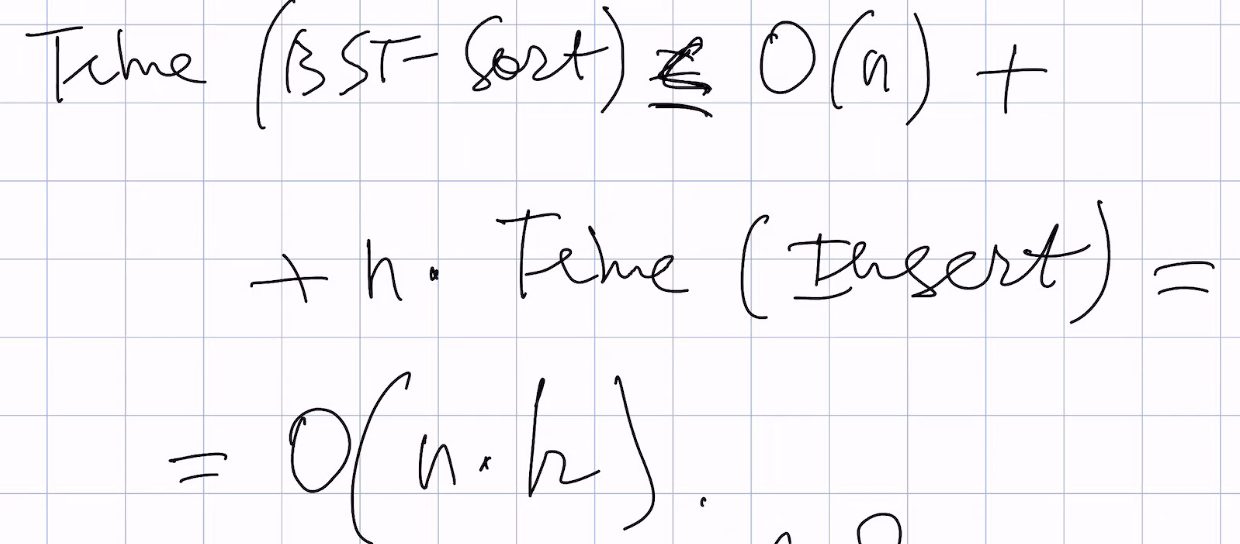 Time (BST-Sort) ≤ O(n) +
+ n · Time (Insert) =
= O(n·h).